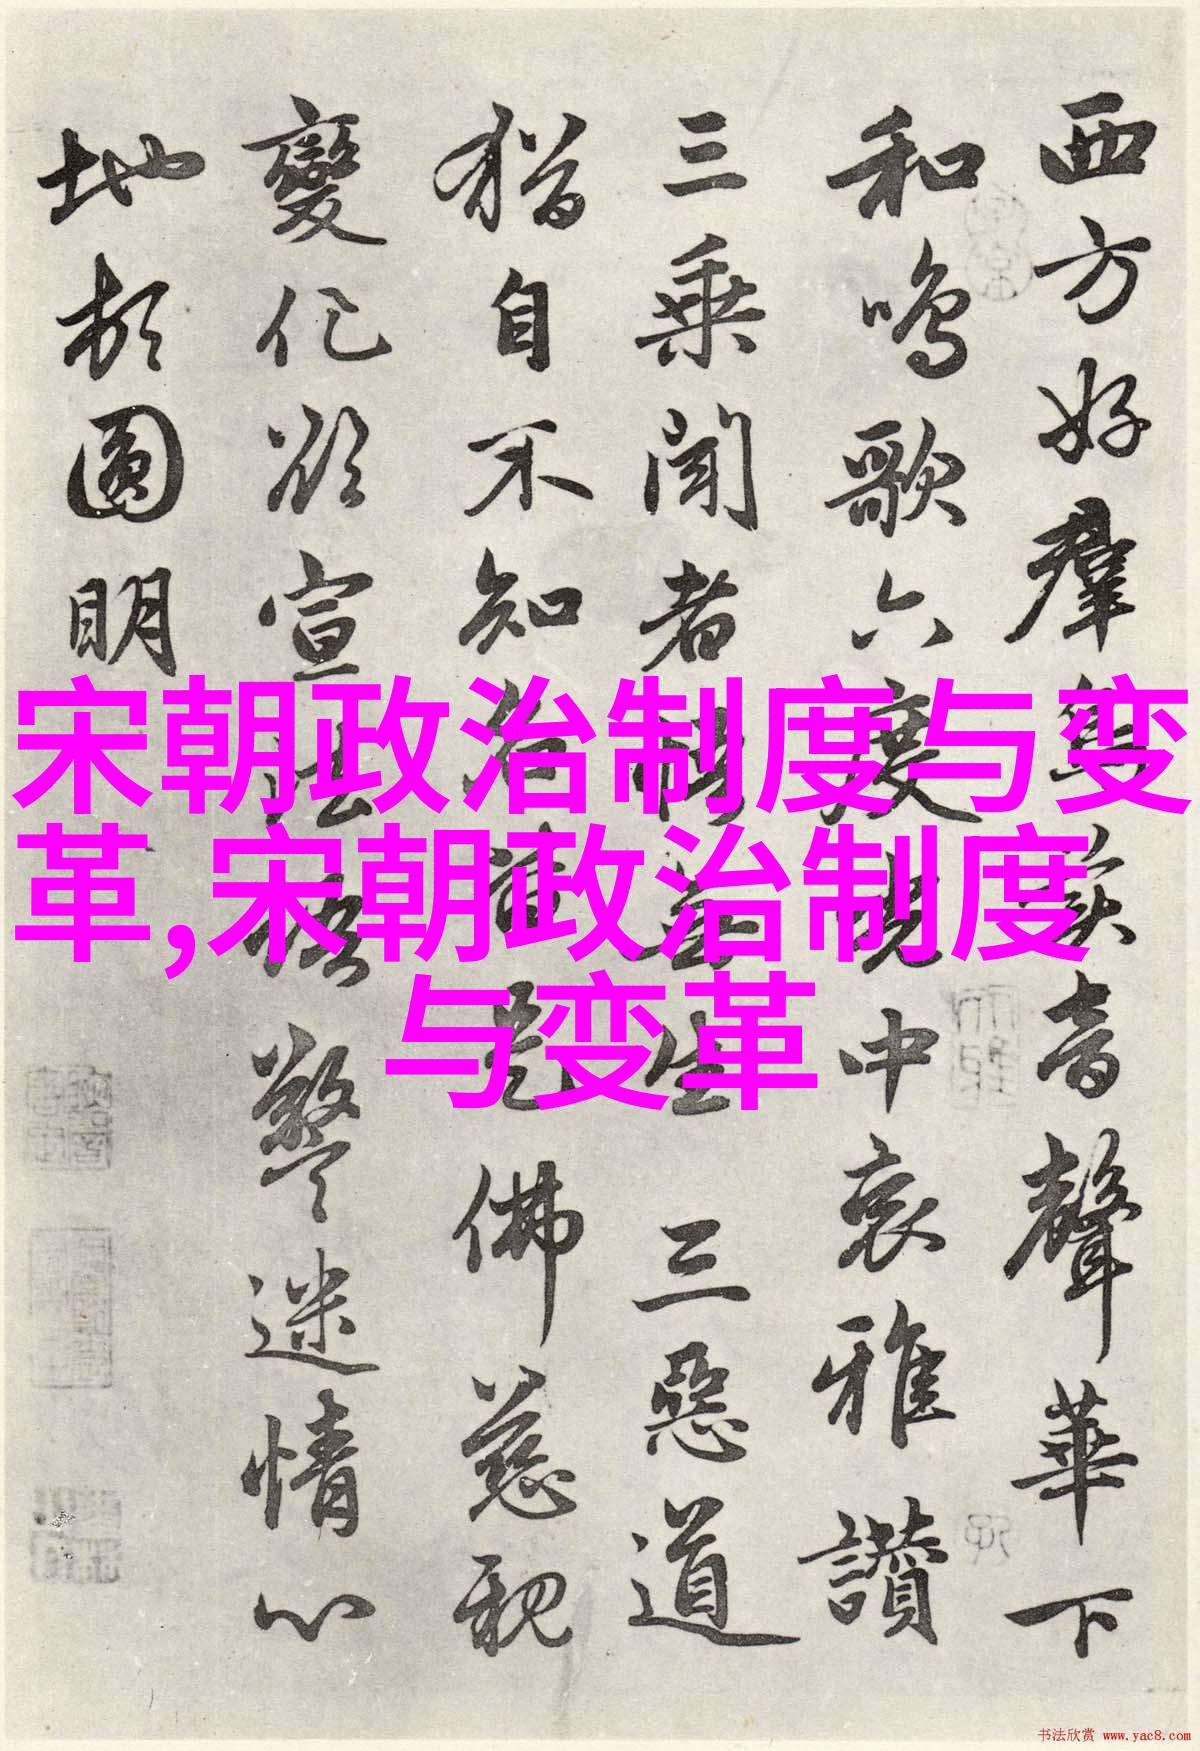 西方好群鳥音聲華下
和鳴歌六度中哀雅讚
三乘聞者生三惡道
猶自不知名佛慈
變化欲宣法警迷情心
地頓圓明
宋朝政治制度与变
革,宋朝政治制度
与变革
书法欣赏 www.yac8.com